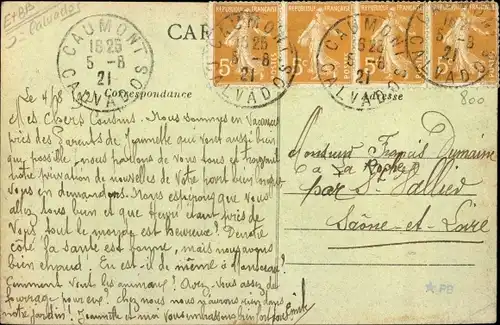 E+BA
Calvados
CAUMONT
16 25
5 - 8
21
CALVADOS
CAR
REPUBLIQUE FRANÇAISE
5c
Correspondance
Adresse
800
Le 4/8
Mes Chers Cousins. Nous sommes en Vacances
près des Parents de Jeannette qui vont aussi bien
que possible, nous parlons de vous tous et trouvant
notre privation de nouvelles de Votre part bien
Vous en demandons. Nous espérons que vous
allez tous bien et que étant près de
Vous tout le monde est heureux! De notre
côté la santé est bonne, mais nous avons
bien chaud. En est-il de même à Monceau?
Comment vont les animaux? Avez-Vous assez de
fourrage pour eux? Chez nous nous n'avons rien dans
notre Jardin! Jeannette et moi Vous embrassons bien fort
Emile
Monsieur Français Dumaine
à La Roche
par St Vallier
Saône-et-Loire
PB